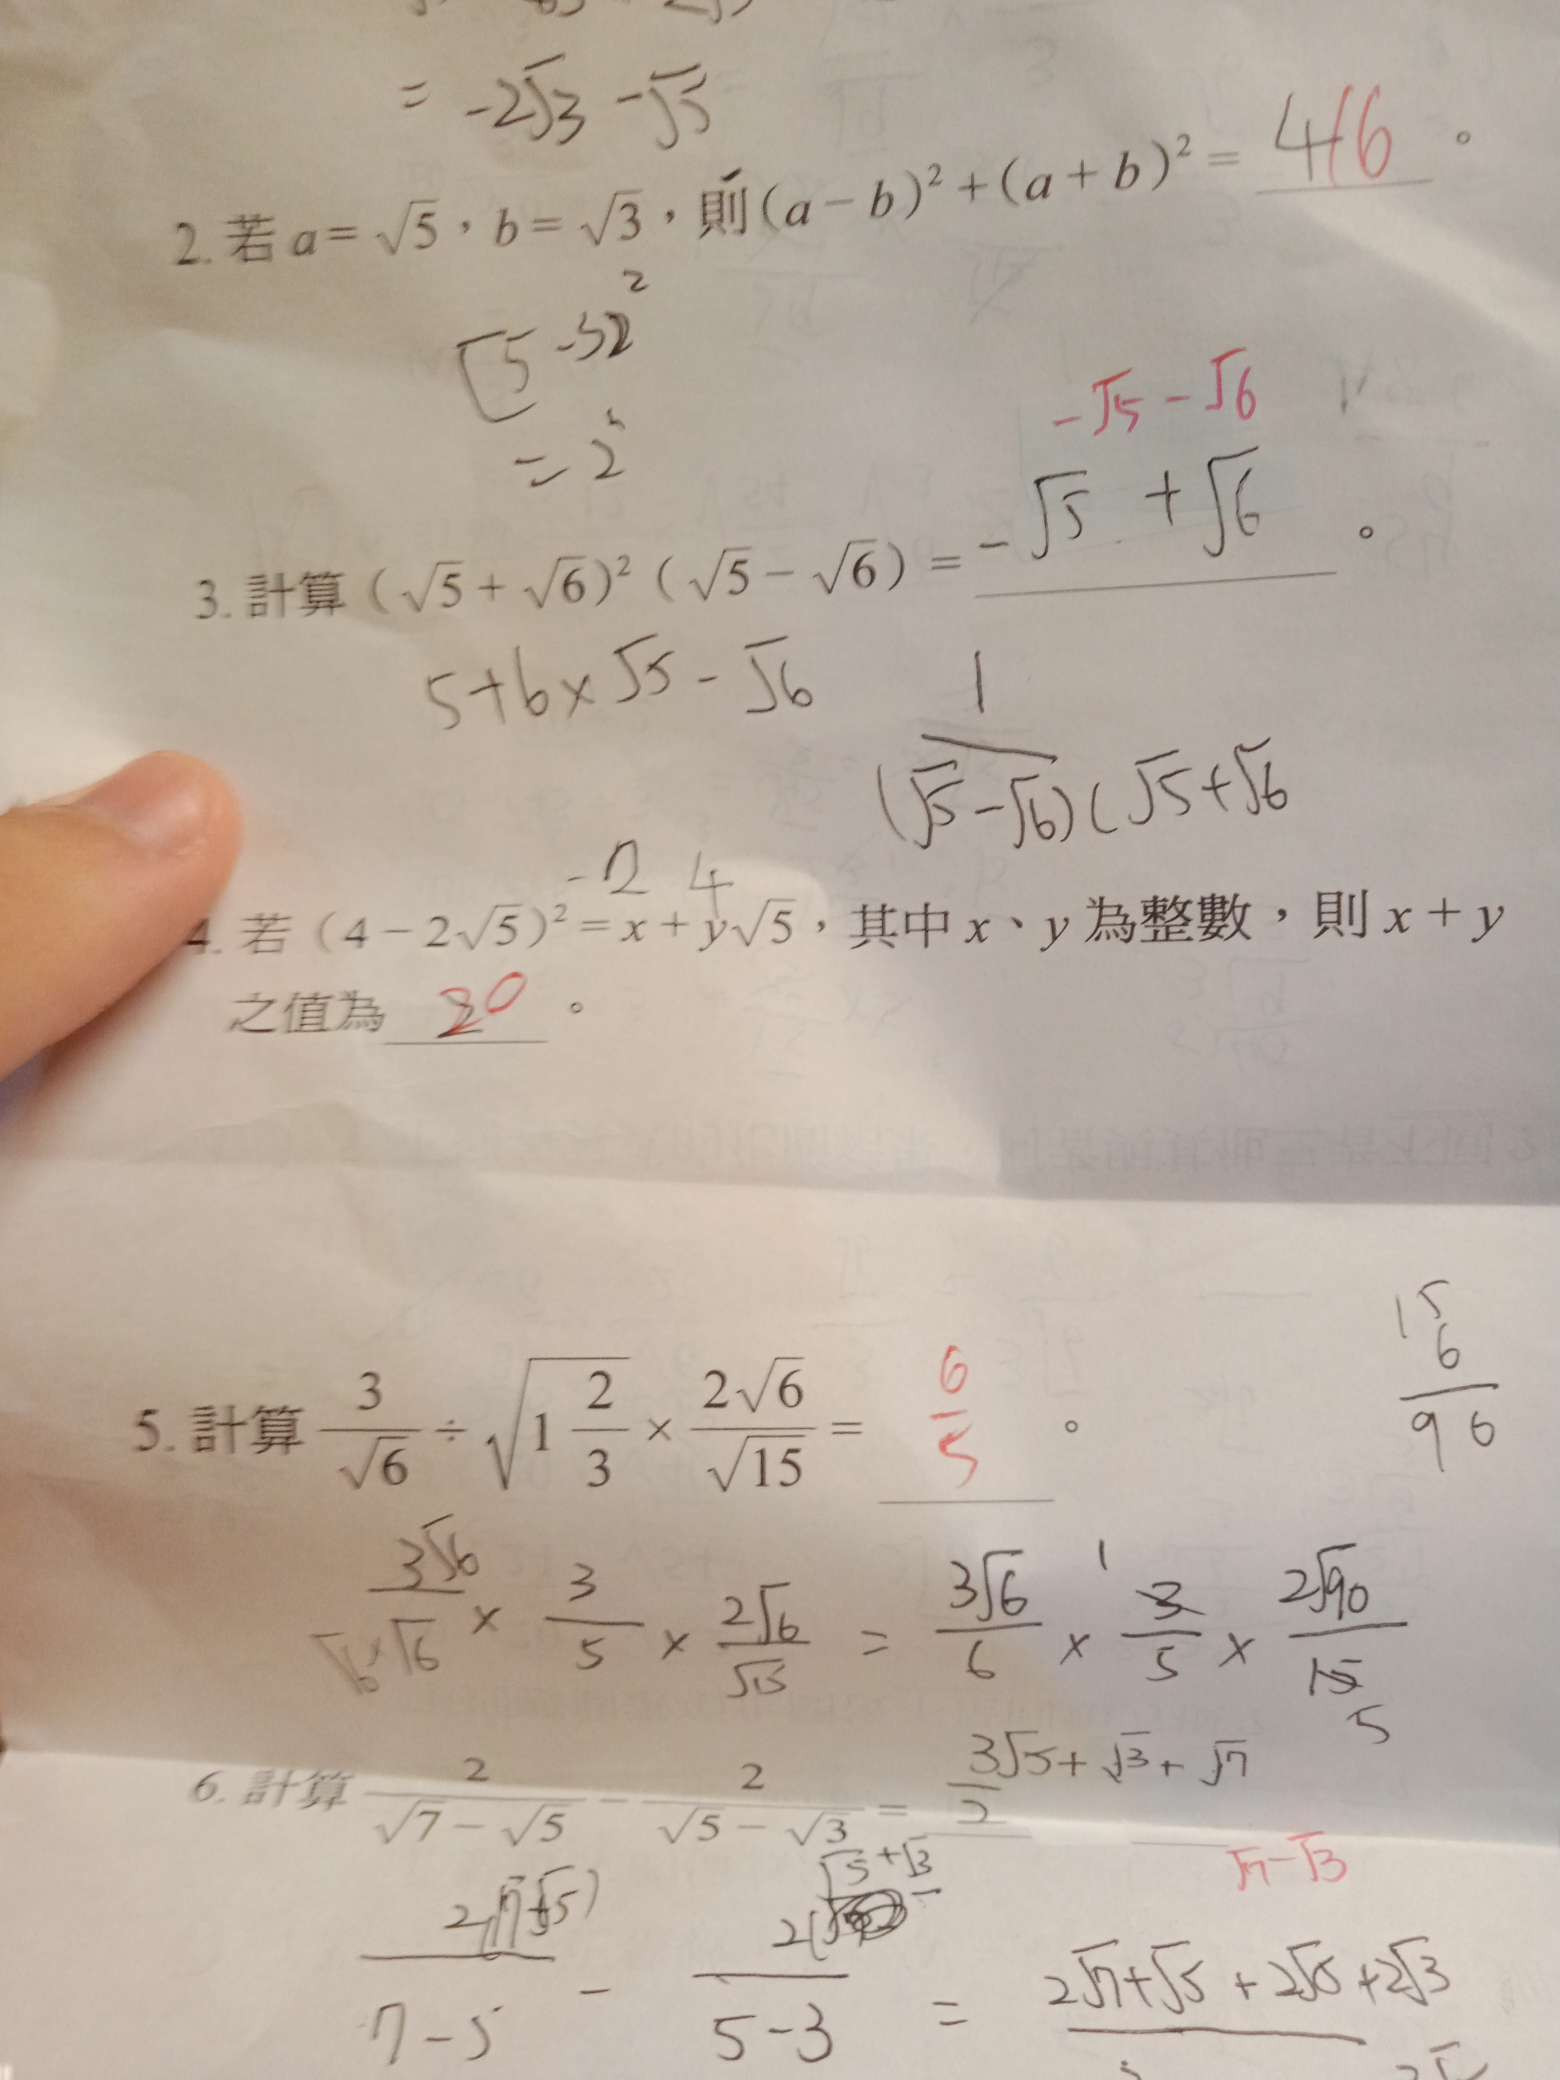 = -2√3 - √5
2. 若 a = √5，b = √3，則 (a - b)² + (a + b)² = 16。
= 2
- √5 - √6
3. 計算 (√5 + √6)² (√5 - √6) = - √5 + √6。
5 + 6 × √5 - √6
1
(√5 - √6)(√5 + √6
-2 4
4. 若 (4 - 2√5)² = x + y√5，其中 x、y 為整數，則 x + y
之值為 20。
15
6
96
5. 計算 3/√6 ÷ √(1 2/3) × 2√6/√15 = 6/5。
3√6/√6×√6 × 3/5 × 2√6/√15 = 3√6/6 × 3/5 × 2√90/15
1
5
3√5 + √3 + √7
6. 計算 2/(√7 - √5) - 2/(√5 - √3) = 2
√7 - √3
√5 + √3
2(√7+√5)/7 - 5 - 2(/5 - 3 = 2√7 + √5 + 2√5 + 2√3